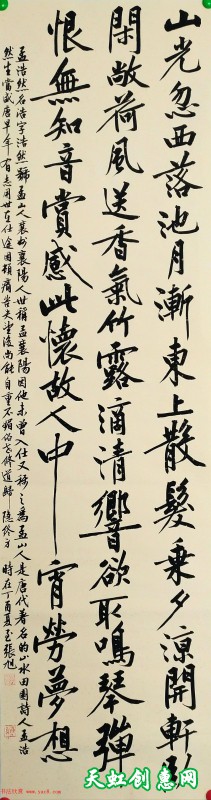 山光忽西落池月漸東上散髮乘夕涼開軒臥
閑敞荷風送香氣竹露滴清響欲取鳴琴彈
恨無知音賞感此懷故人中宵勞夢想
孟浩然名浩字浩然號孟山人襄州襄陽人世稱孟襄陽因他未曾入仕又稱之為孟山人是唐代著名的山水田園詩人孟浩
然生當盛唐早年有志用世在仕途困頓痛苦失望後尚能自重不媚俗世修道歸隱終身 時在丁酉夏至張旭
天虹创意网